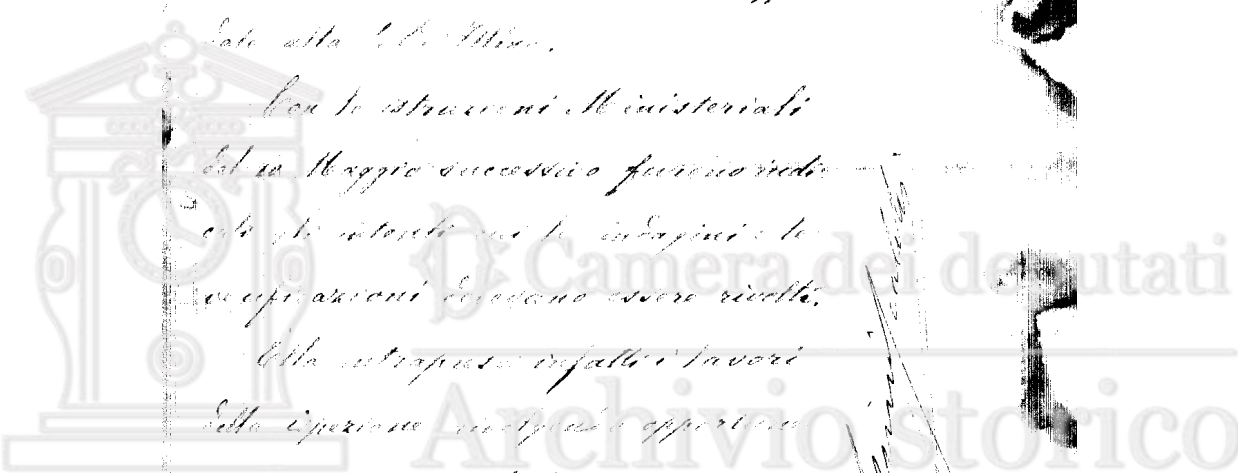 date alla S. V. Illma.
Con le istruzioni Ministeriali
del 10 Maggio successivo furono indi-
cati gli intenti cui le indagini e le
verificazioni dovevano essere rivolti.
Ella intraprese infatti i lavori
della ispezione
Camera dei deputati
Archivio storico